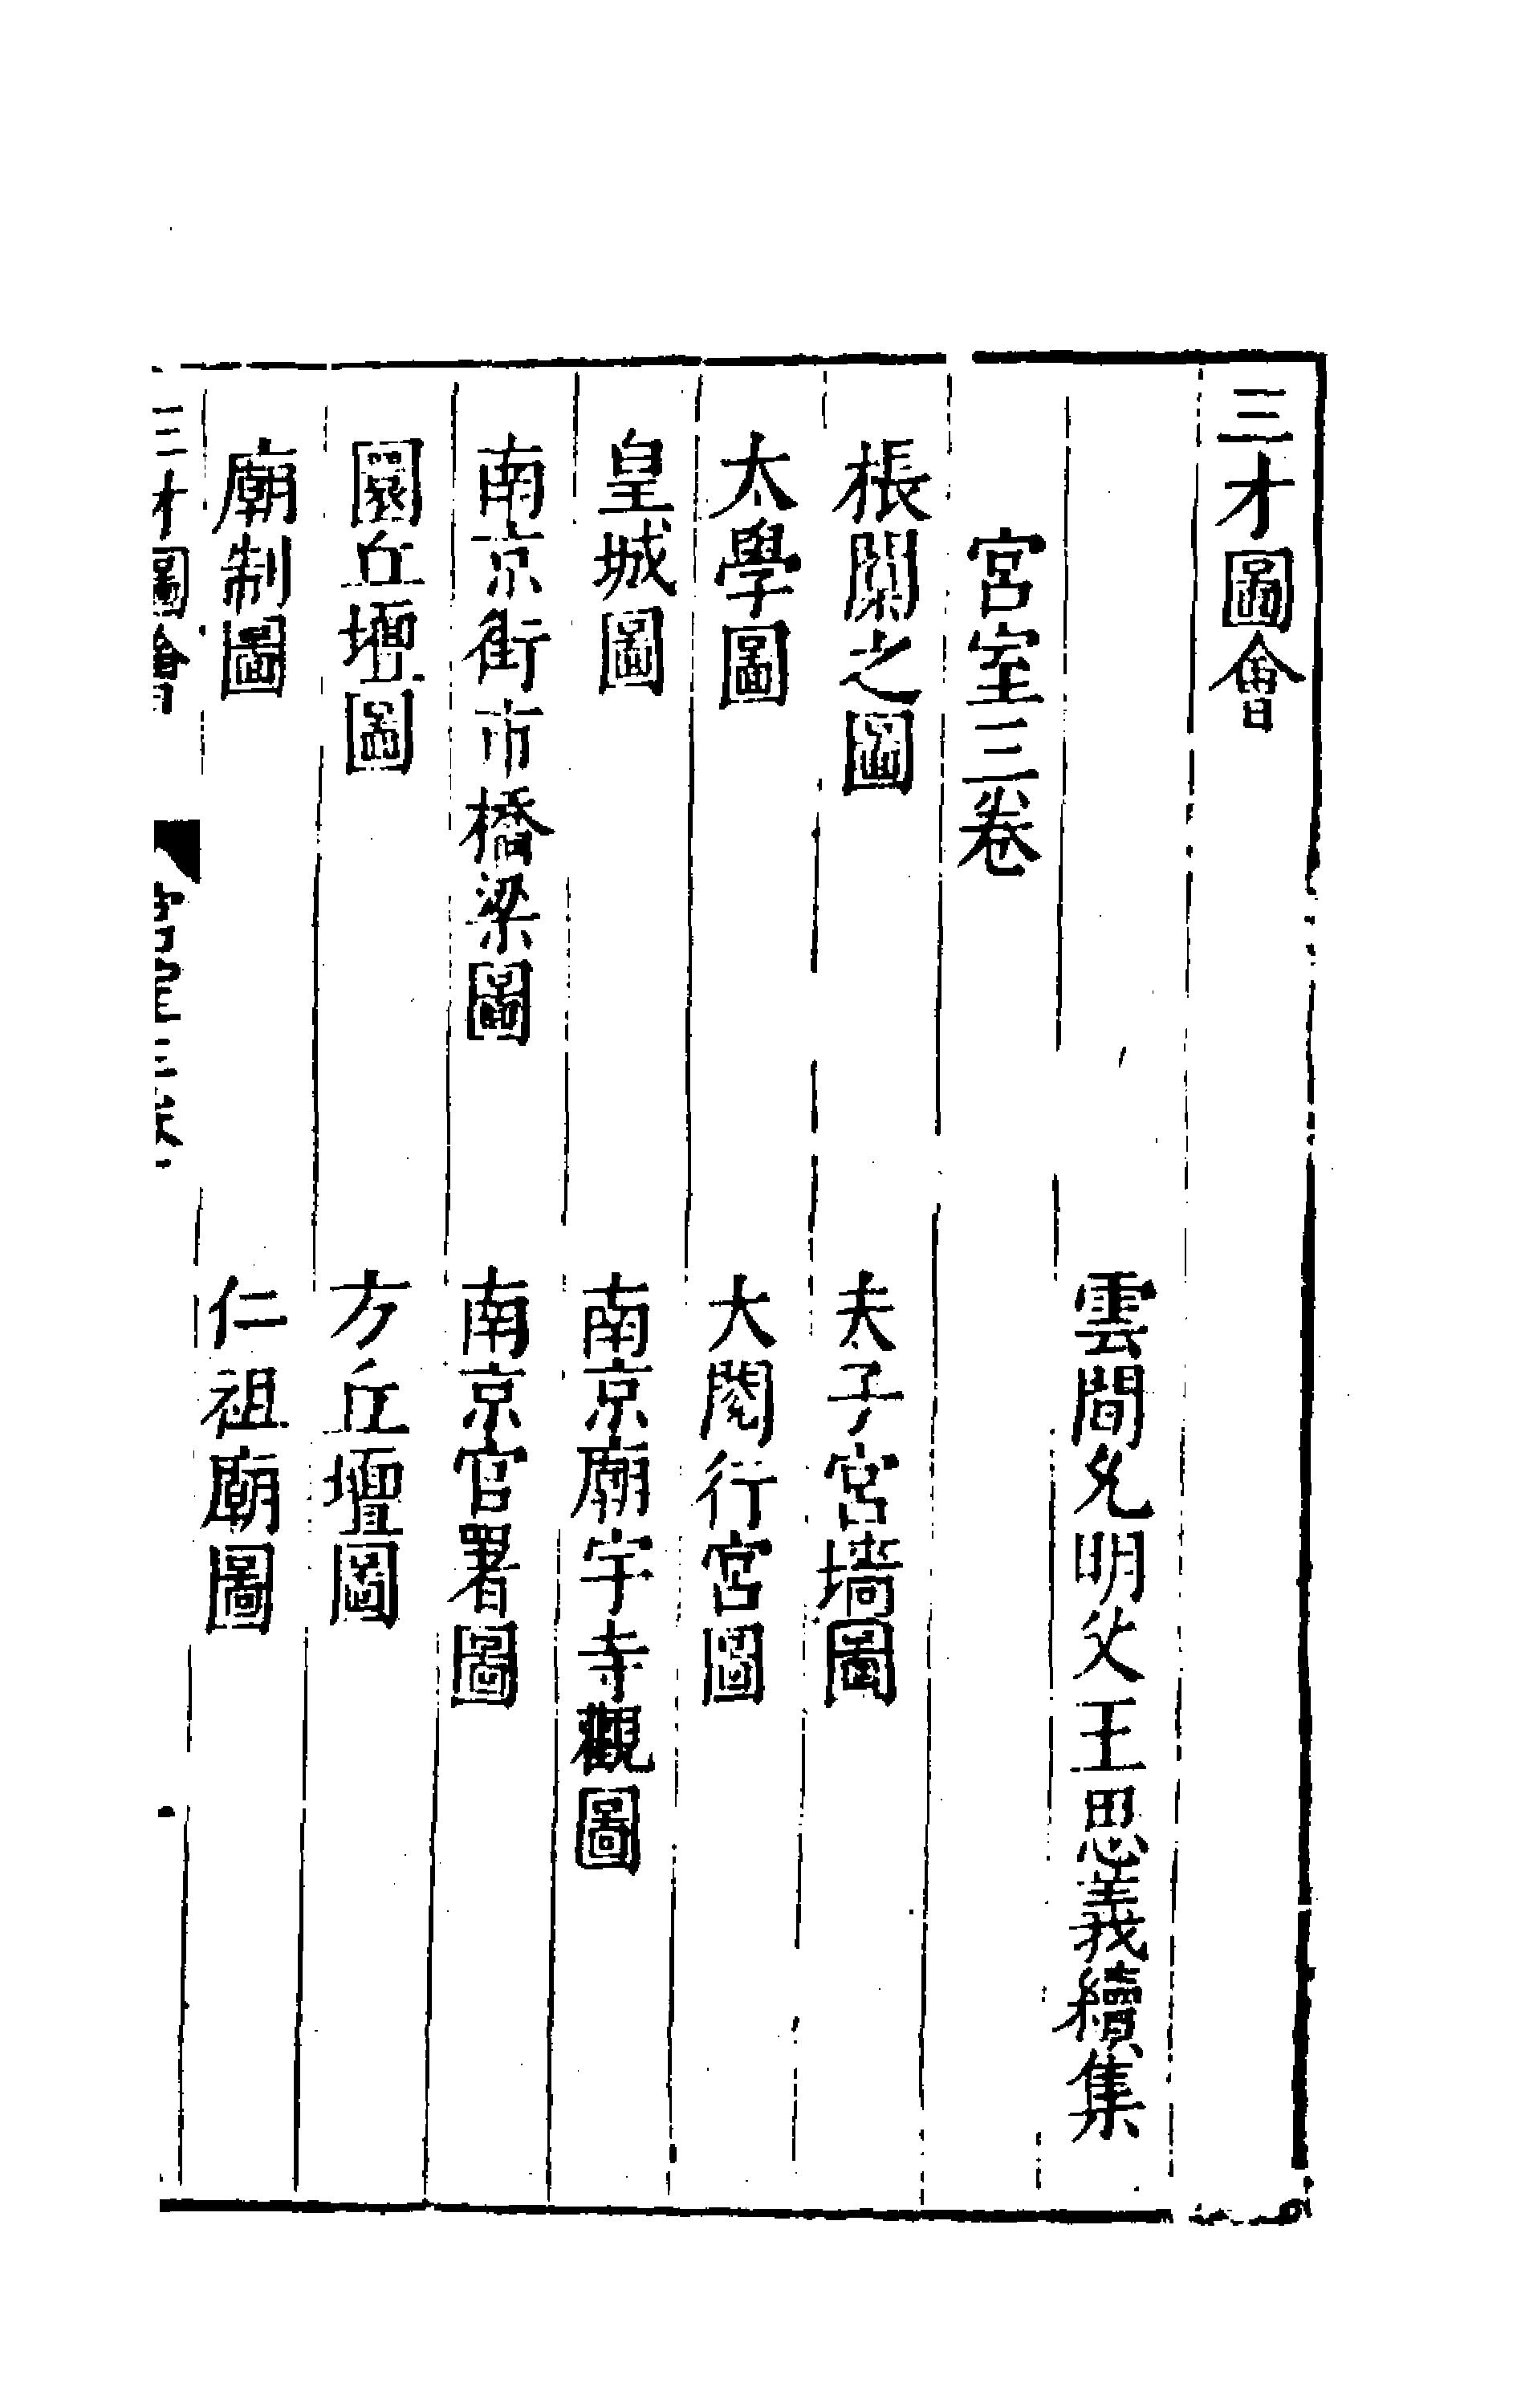 三才圖會
雲間允明父王思義續集
宮室三卷
棖闑之圖
夫子宮墻圖
太學圖
大閱行宮圖
皇城圖
南京廟宇寺觀圖
南京街市橋梁圖
南京官署圖
圜丘壇圖
方丘壇圖
廟制圖
仁祖廟圖
三才圖會
宮室三卷